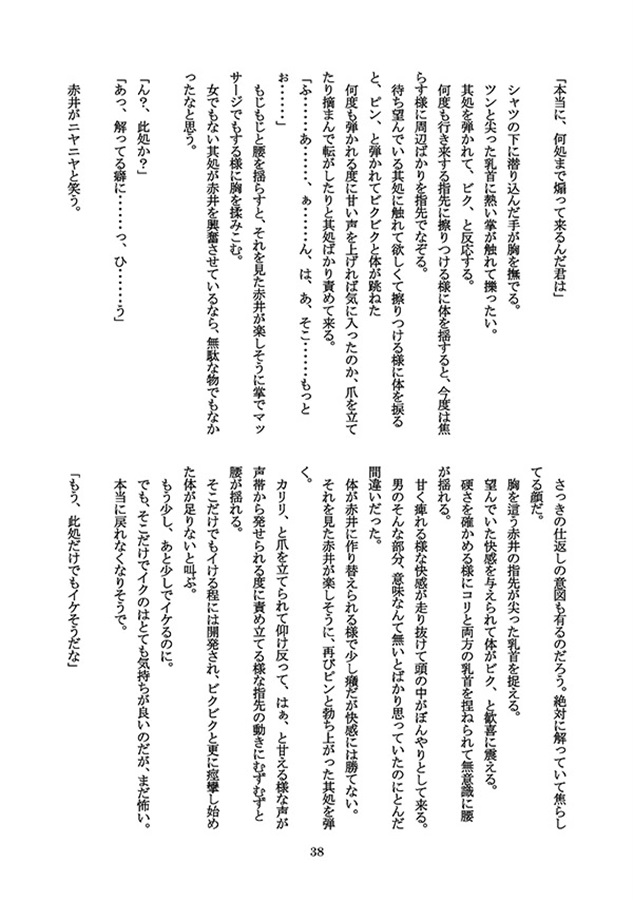 「本当に、何処まで煽って来るんだ君は」
シャツの下に潜り込んだ手が胸を撫でる。
ツンと尖った乳首に熱い掌が触れて擽ったい。
其処を弾かれて、ビク、と反応する。
何度も行き来する指先に擦りつける様に体を揺すると、今度は焦
らす様に周辺ばかりを指先でなぞる。
待ち望んでいる其処に触れて欲しくて擦りつける様に体を捩る
と、ピン、と弾かれてビクビクと体が跳ねた
何度も弾かれる度に甘い声を上げれば気に入ったのか、爪を立て
たり摘まんで転がしたりと其処ばかり責めて来る。
「ふ‥‥‥あ‥‥‥、ぁ‥‥‥ん、は、あ、そこ‥‥‥もっと
ぉ‥‥‥」
もじもじと腰を揺らすと、それを見た赤井が楽しそうに掌でマッ
サージでもする様に胸を揉みこむ。
女でもない其処が赤井を興奮させているなら、無駄な物でもなか
ったなと思う。
「ん?、此処か?」
「あっ、解ってる癖に‥‥‥っ、ひ‥‥‥う」
赤井がニヤニヤと笑う。
さっきの仕返しの意図も有るのだろう。絶対に解っていて焦らし
てる顔だ。
胸を這う赤井の指先が尖った乳首を捉える。
望んでいた快感を与えられて体がビク、と歓喜に震える。
硬さを確かめる様にコリと両方の乳首を捏ねられて無意識に腰
が揺れる。
甘く痺れる様な快感が走り抜けて頭の中がぼんやりとして来る。
男のそんな部分、意味なんて無いとばかり思っていたのにとんだ
間違いだった。
体が赤井に作り替えられる様で少し癪だが快感には勝てない。
それを見た赤井が楽しそうに、再びピンと勃ち上がった其処を弾
く。
カリリ、と爪を立てられて仰け反って、はぁ、と甘える様な声が
声帯から発せられる度に責め立てる様な指先の動きにむずむずと
腰が揺れる。
そこだけでもイける程には開発され、ビクビクと更に痙攣し始め
た体が足りないと叫ぶ。
もう少し、あと少しでイケるのに。
でも、そこだけでイクのはとても気持ちが良いのだが、まだ怖い。
本当に戻れなくなりそうで。
「もう、此処だけでもイケそうだな」
38